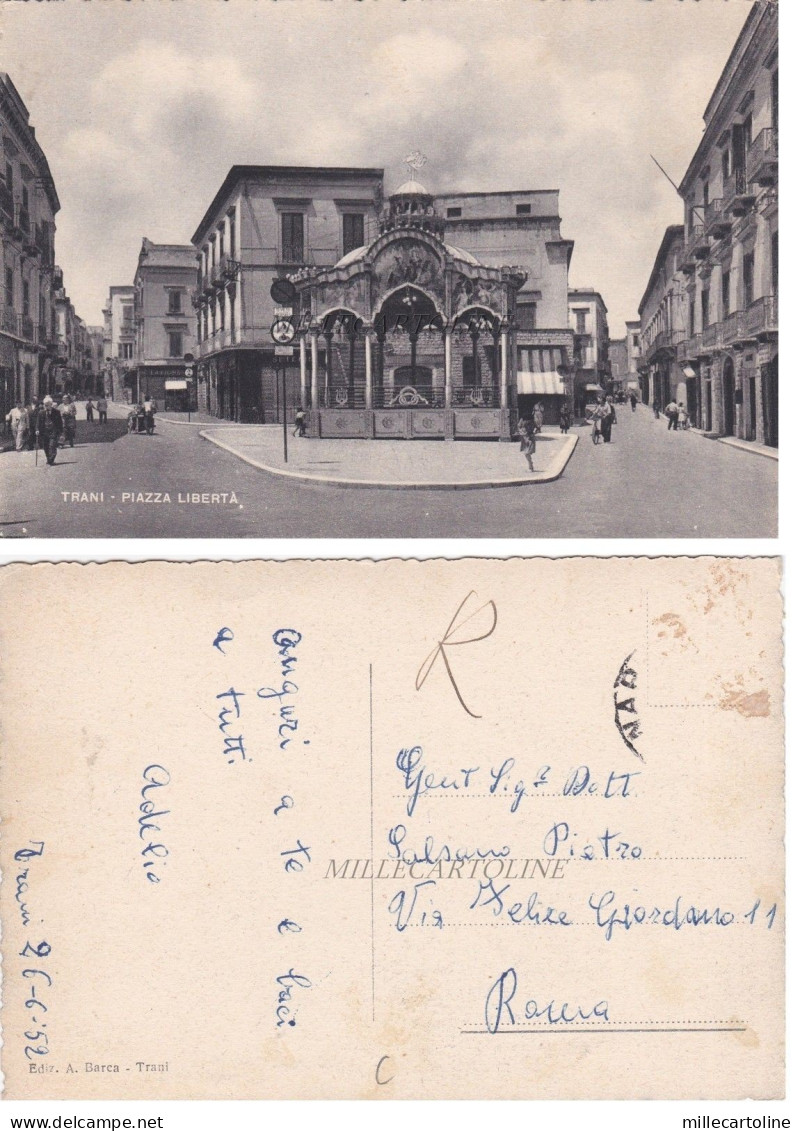 MILLECARTOLINE
TRANI - PIAZZA LIBERTÀ
R
Auguri a te e baci
a tutti
Adelio
Trani 26-6-52
Gent Sigr Dott
Salsano Pietro
MILLECARTOLINE
Via Felice Giordano 11
Roma
Ediz. A. Barca - Trani
C
millecartoline
www.delcampe.net